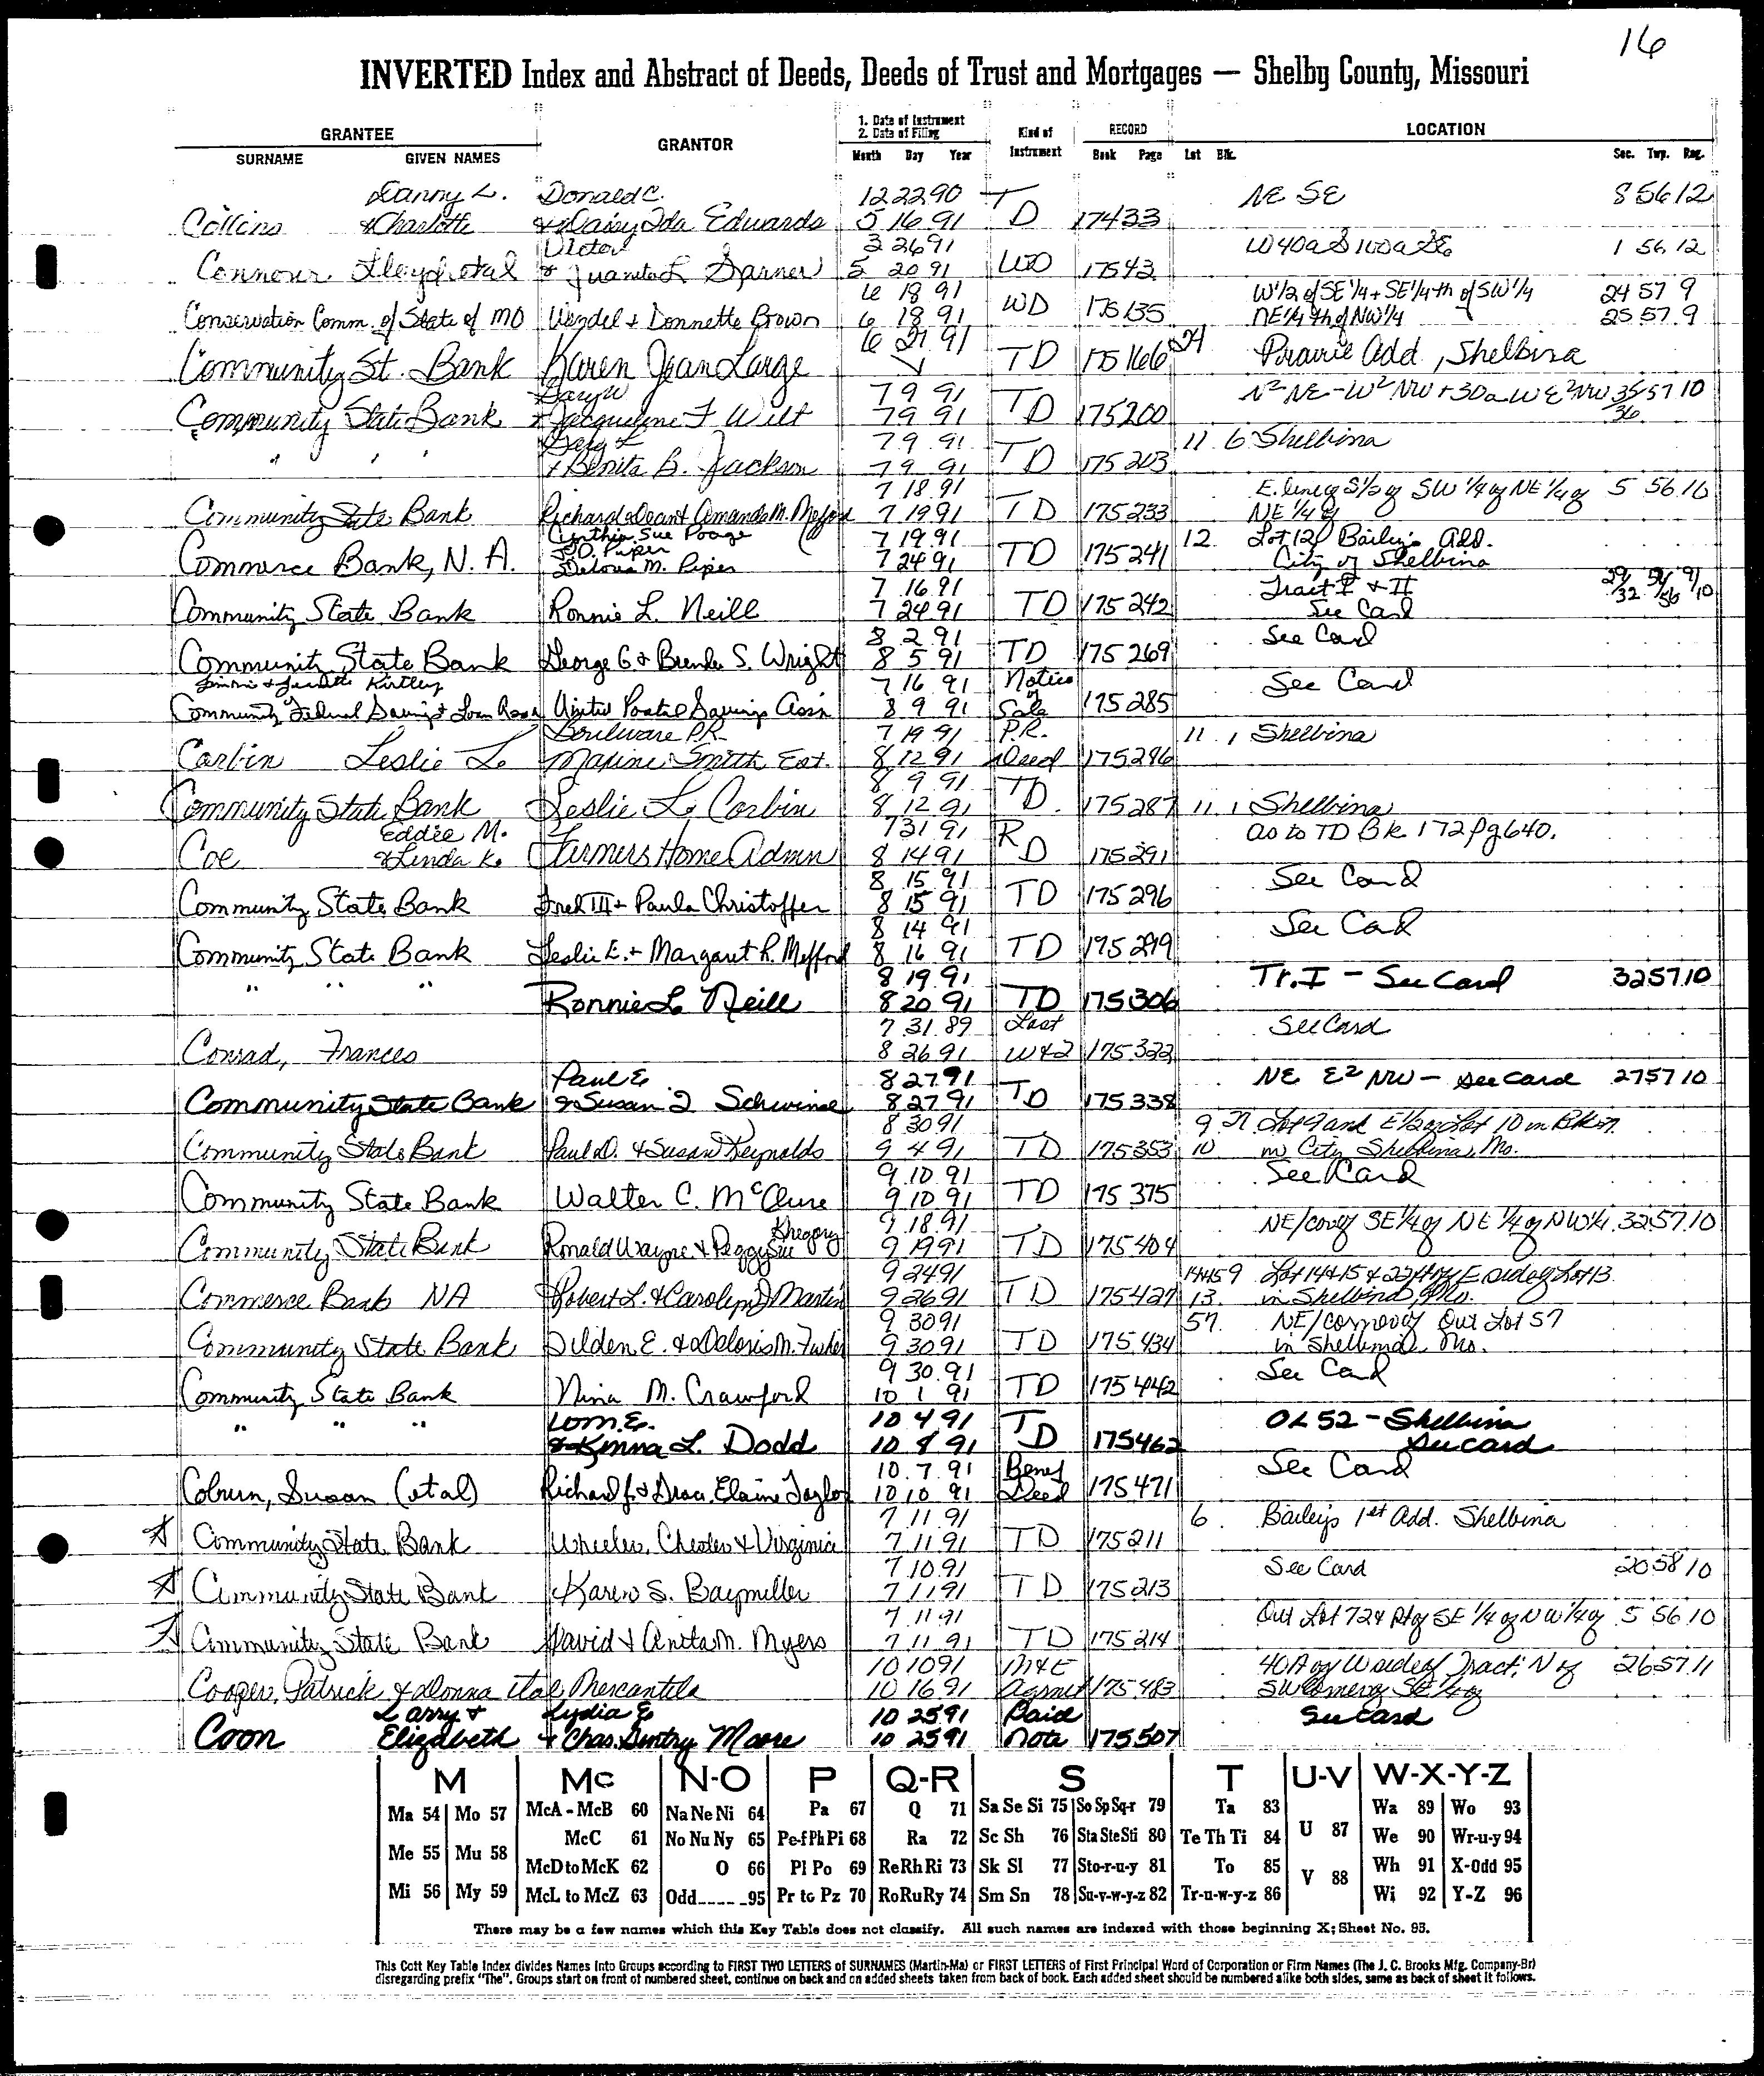 16
INVERTED Index and Abstract of Deeds, Deeds of Trust and Mortgages — Shelby County, Missouri
GRANTEE GRANTOR 1. Date of Instrument 2. Date of Filing Kind of Instrument RECORD LOCATION
SURNAME GIVEN NAMES Month Day Year Book Page Lot Blk. Sec. Twp. Rag.
Danny L. Donald C. 12 22 90 NE SE 8 56 12
Collins & Charlotte & Daisy Ida Edwards 5 16 91 TD 174 33
Victor 3 26 91 W40a S100a SE 1 56 12
Connour Lloyd etal & Juanita L 5 20 91 WD 175 42
6 18 91 W1/2 of SE1/4 + SE1/4th of SW1/4 24 57 9
Conservation Comm. of State of MO Wendel & Donnette Brown 6 18 91 WD 175 135 NE1/4th of NW1/4 25 57 9
6 21 91
Community St. Bank Karen Jean Large TD 175 166 24 Prairie Add, Shelbina
7 9 91 N2 NE - W2 NW + 30a W E2 NW 35 57 10
Community State Bank & Jacqueline F Wilt 7 9 91 TD 175 200 36
7 9 91 11 6 Shelbina
" " " & Benita B. Jackson 7 9 91 TD 175 203
7 18 91 E. line of S1/2 of SW 1/4 of NE 1/4 of 5 56 10
Community State Bank Richard Dean & Amanda M. Mefford 7 19 91 TD 175 233 NE 1/4 of
Cynthia Sue Poage 7 19 91 12 Lot 12 of Bailey's Add.
J.D. Piper
Commerce Bank, N.A. Deloris M. Piper 7 24 91 TD 175 241 City of Shelbina
7 16 91 Tract I & II 29/32 57/56 9/10
Community State Bank Ronnie L. Neill 7 24 91 TD 175 242 See Card
8 2 91 See Card
Community State Bank George G & Brenda S. Wright 8 5 91 TD 175 269
Jimmie & Juanita Kirtley 7 16 91 Notice of See Card
Community Federal Saving & Loan Assn United Postal Savings Assn 8 9 91 Sale 175 285
Boulware P.R. 7 19 91 P.R. 11 1 Shelbina
Corbin Leslie L. Maxine Smith Est. 8 12 91 Deed 175 286
8 9 91
Community State Bank Leslie L. Corbin 8 12 91 TD 175 287 11 1 Shelbina
Eddie M. 7 31 91 as to TD Bk 172 pg 640.
Coe & Linda K. Farmers Home Admn 8 14 91 RD 175 291
8 15 91 See Card
Community State Bank Fred III & Paula Christoffer 8 15 91 TD 175 296
8 14 91 See Card
Community State Bank Leslie E. & Margaret R. Mefford 8 16 91 TD 175 299
8 19 91 Tr. I - See Card 32 57 10
" " " Ronnie L. Neill 8 20 91 TD 175 306
7 31 89 Last See Card
Conrad, Frances 8 26 91 W&2 175 322
Paul E 8 27 91 NE E2 NW - See card 27 57 10
Community State Bank & Susan J Schwinke 8 27 91 TD 175 338
8 30 91 9 27 Lot 9 and E1/2 of Lot 10 in Bk 27.
Community State Bank Paul D. & Susan Reynolds 9 4 91 TD 175 353 10 in City Shelbina, Mo.
9 10 91 See Card
Community State Bank Walter C. McClure 9 10 91 TD 175 375
9 18 91 NE/cor of SE 1/4 of NE 1/4 of NW 1/4 32 57 10
Community State Bank Ronald Wayne & Peggy Sue Gregory 9 19 91 TD 175 404
9 24 91 14&15 9 Lot 14 & 15 & 22ft of E side of Lot 13
Commerce Bank NA Robert L. & Carolyn J Martin 9 26 91 TD 175 427 13 in Shelbina, Mo.
9 30 91 57 NE/corner of Out Lot 57
Community State Bank Dilden E. & Deloris M. 9 30 91 TD 175 434 in Shelbina, Mo.
9 30 91 See Card
Community State Bank Nina M. Crawford 10 1 91 TD 175 442
Wm. E. 10 4 91 OL 52 - Shelbina
" " " & Kenna L. Dodd 10 8 91 TD 175 462 See card
10 7 91 Benef See Card
Coburn, Susan (etal) Richard J. & Elaine Taylor 10 10 91 Deed 175 471
7 11 91 6 Bailey's 1st Add. Shelbina
Community State Bank Wheeler, Chester & Virginia 7 11 91 TD 175 211
7 10 91 See Card 20 58 10
Community State Bank Karen S. Baymiller 7 11 91 TD 175 213
7 11 91 Out Lot 72 & Pt of SE 1/4 of NW 1/4 of 5 56 10
Community State Bank David & Anita M. Myers 7 11 91 TD 175 214
10 10 91 M&E 40A of W side of Tract; N of 26 57 11
Cooger, Patrick & Donna etal Mercantile 10 16 91 Agrmt 175 483 SW corner of SE 1/4 of
Larry & Lydia E 10 25 91 Paid See card
Coon Elizabeth & Chas. Gentry Moore 10 25 91 Note 175 507
M Mc N-O P Q-R S T U-V W-X-Y-Z
Ma 54 Mo 57 McA - McB 60 Na Ne Ni 64 Pa 67 Q 71 Sa Se Si 75 So Sp Sq-r 79 Ta 83 U 87 Wa 89 Wo 93
Me 55 Mu 58 McC 61 No Nu Ny 65 Pe-f Ph Pi 68 Ra 72 Sc Sh 76 Sta Ste Sti 80 Te Th Ti 84 We 90 Wr-u-y 94
McD to McK 62 O 66 Pl Po 69 Re Rh Ri 73 Sk Sl 77 Sto-r-u-y 81 To 85 V 88 Wh 91 X-Odd 95
Mi 56 My 59 McL to McZ 63 Odd 95 Pr to Pz 70 Ro Ru Ry 74 Sm Sn 78 Su-v-w-y-z 82 Tr-u-w-y-z 86 Wi 92 Y-Z 96
There may be a few names which this Key Table does not classify. All such names are indexed with those beginning X; Sheet No. 95.
This Cott Key Table Index divides Names into Groups according to FIRST TWO LETTERS of SURNAMES (Martin-Ma) or FIRST LETTERS of First Principal Word of Corporation or Firm Names (The J. C. Brooks Mfg. Company-Br)
disregarding prefix "The". Groups start on front of numbered sheet, continue on back and on added sheets taken from back of book. Each added sheet should be numbered alike both sides, same as back of sheet it follows.